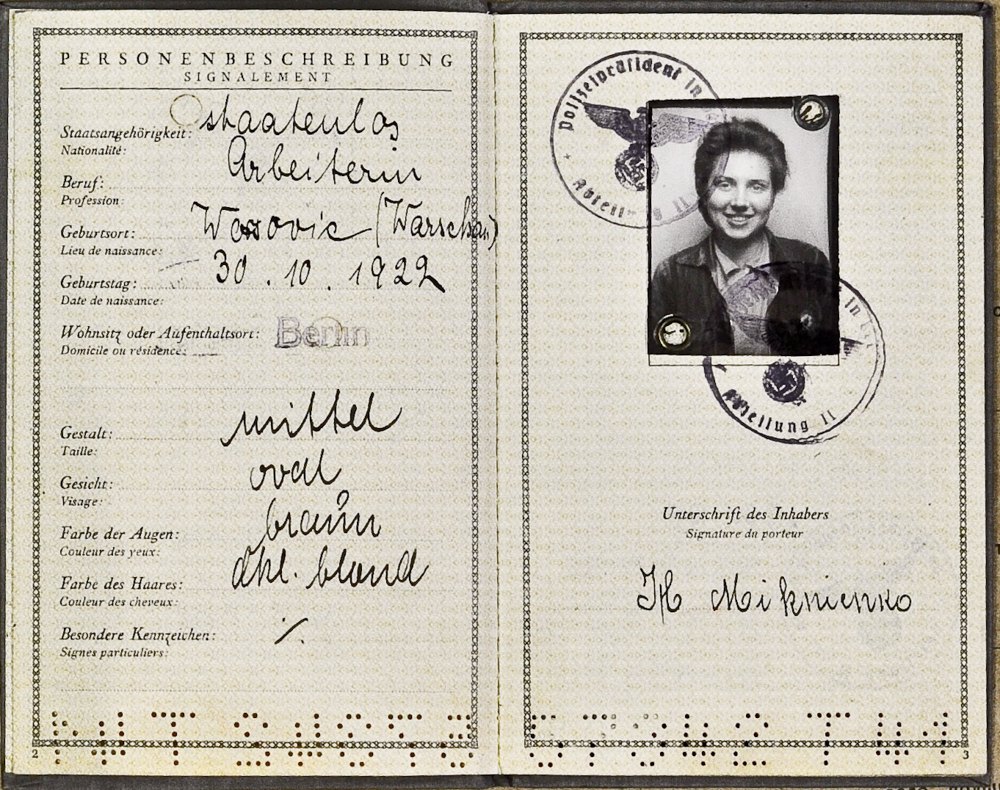 PERSONENBESCHREIBUNG
SIGNALEMENT
Staatsangehörigkeit: staatenlos
Nationalité:
Beruf: Arbeiterin
Profession:
Geburtsort: (Warschau)
Lieu de naissance:
Geburtstag: 30.10.1922
Date de naissance:
Wohnsitz oder Aufenthaltsort: Berlin
Domicile ou résidence:
Gestalt: mittel
Taille:
Gesicht: oval
Visage:
Farbe der Augen: braun
Couleur des yeux:
Farbe des Haares: dkl. blond
Couleur des cheveux:
Besondere Kennzeichen: ⁒
Signes particuliers:
2
Polizeipräsident in
Abteilung II
in
Abteilung II
Unterschrift des Inhabers
Signature du porteur
Miknienko
3